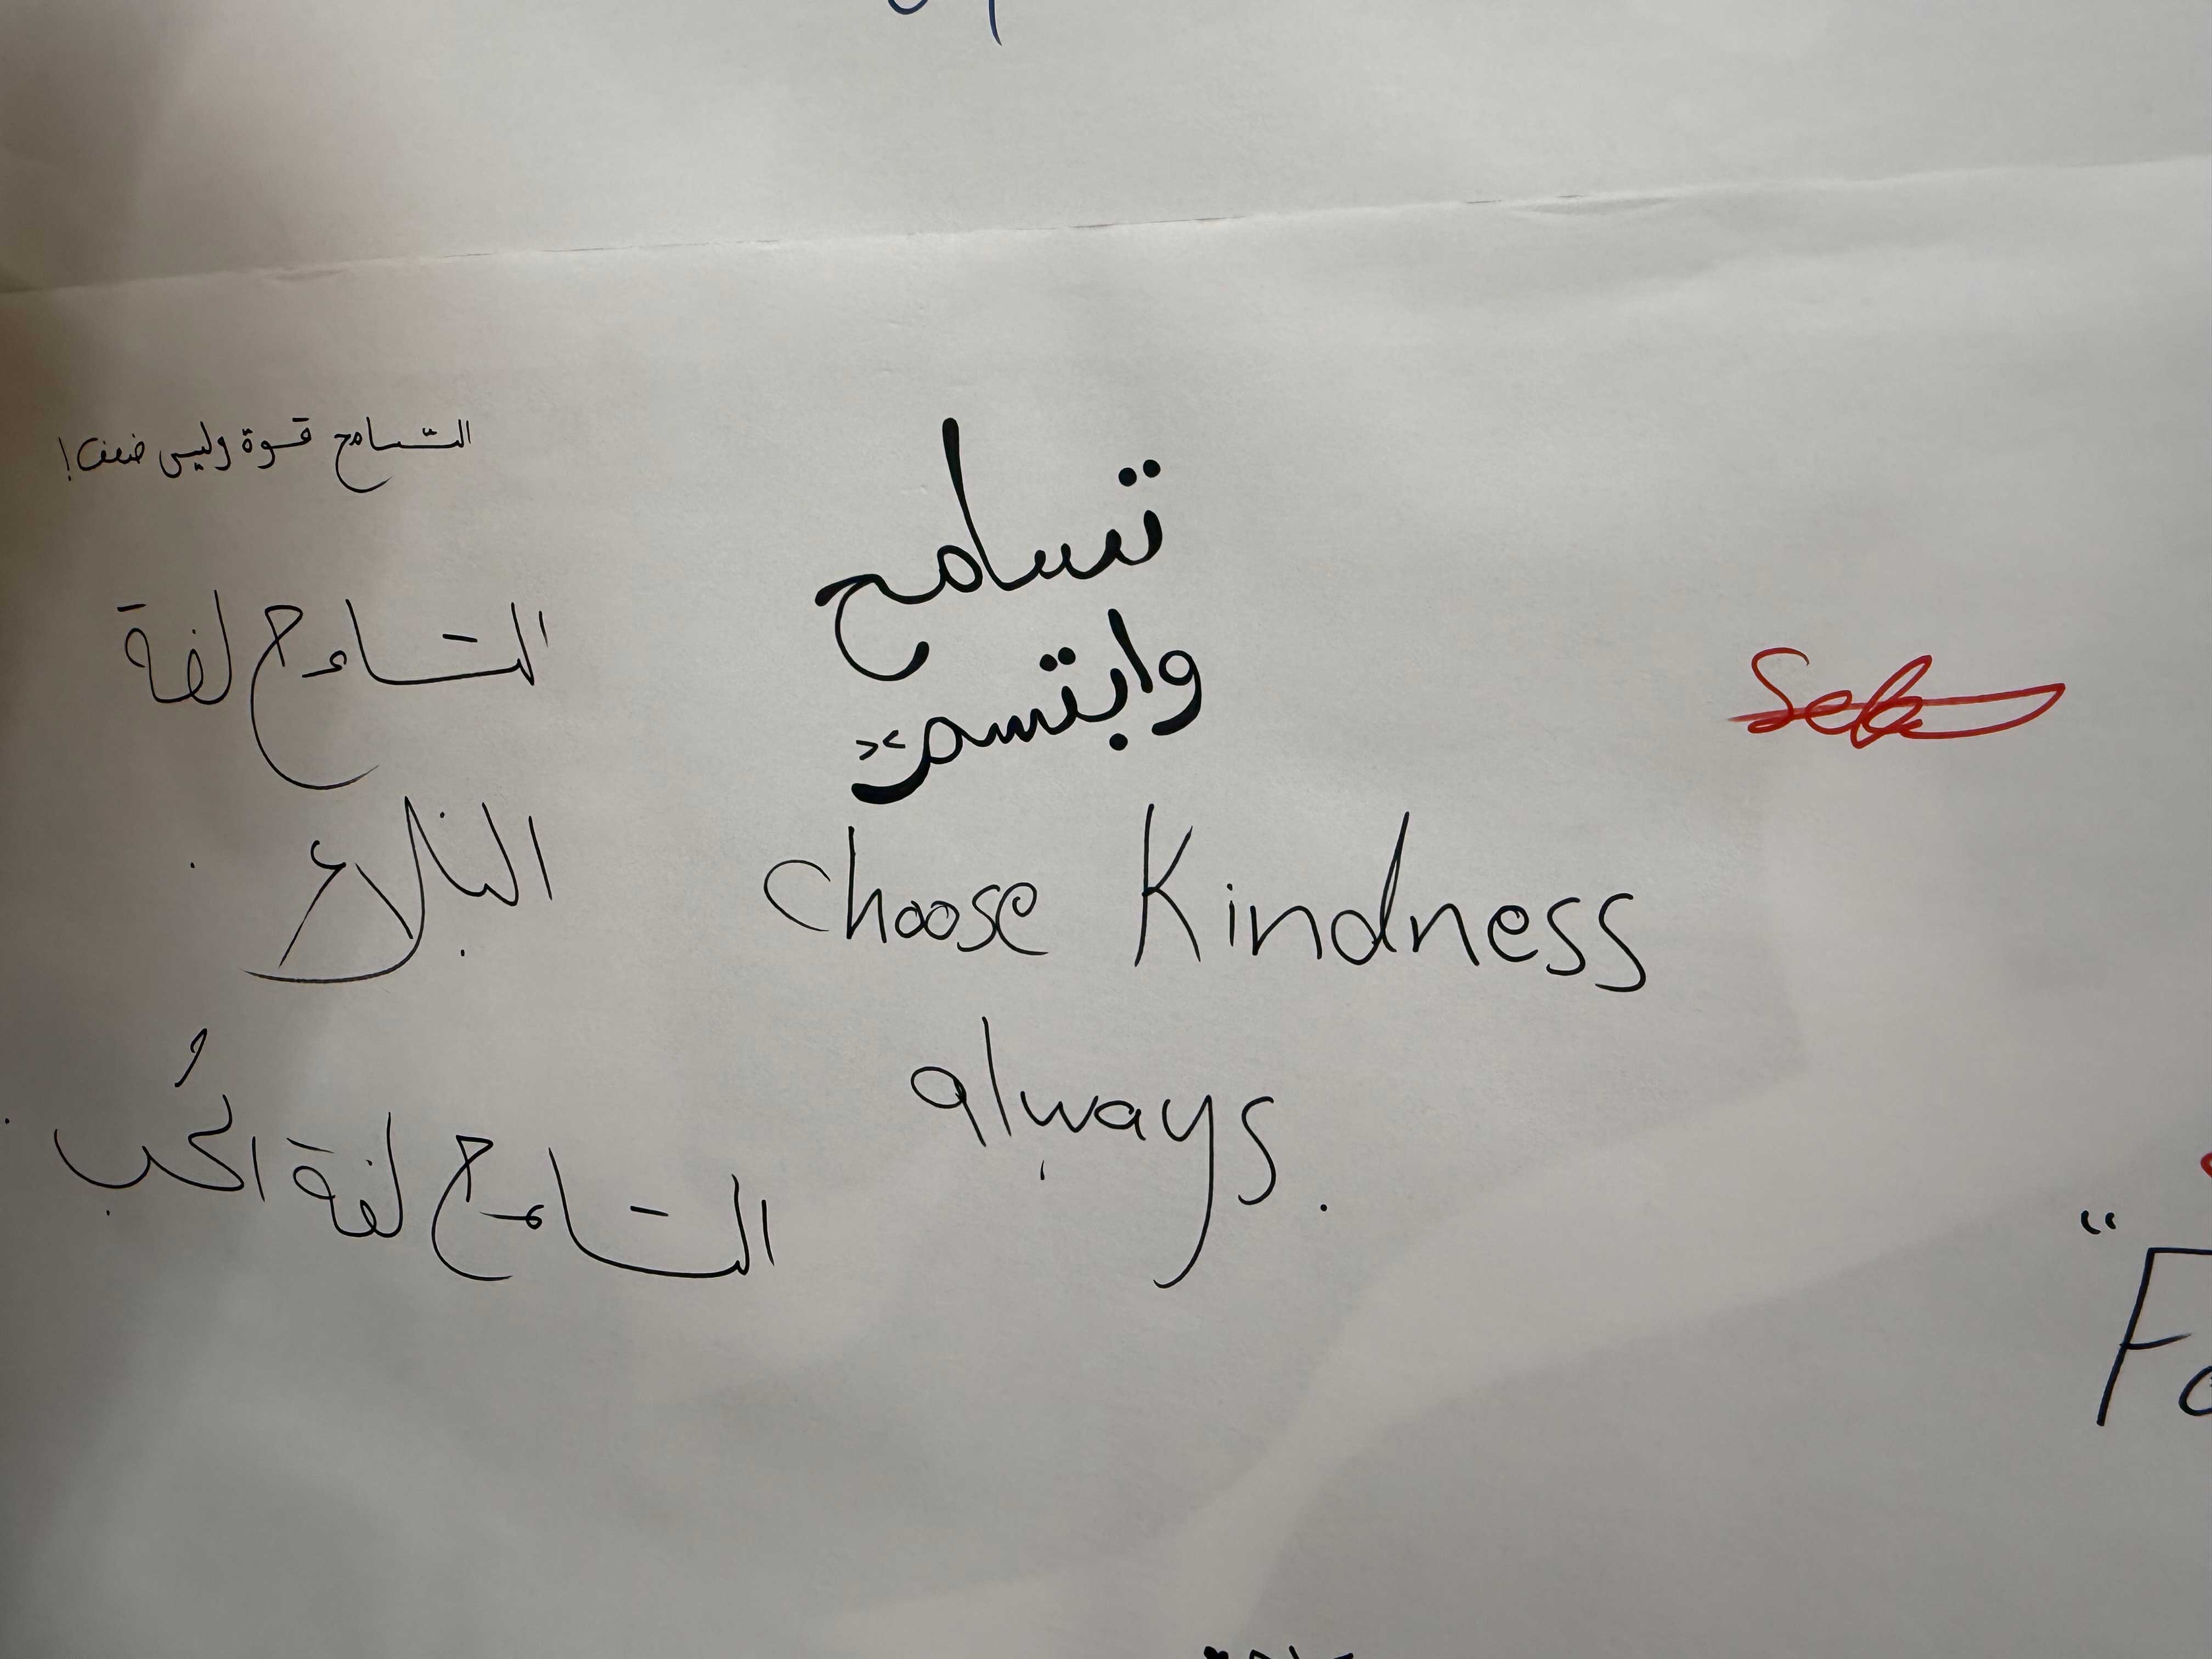 التسامح قوة وليس ضعف!
تسامح
وابتسم
التسامح لغة
النبلاء.
choose Kindness
always.
التسامح لغة الحُب.
Seb
"
Fo